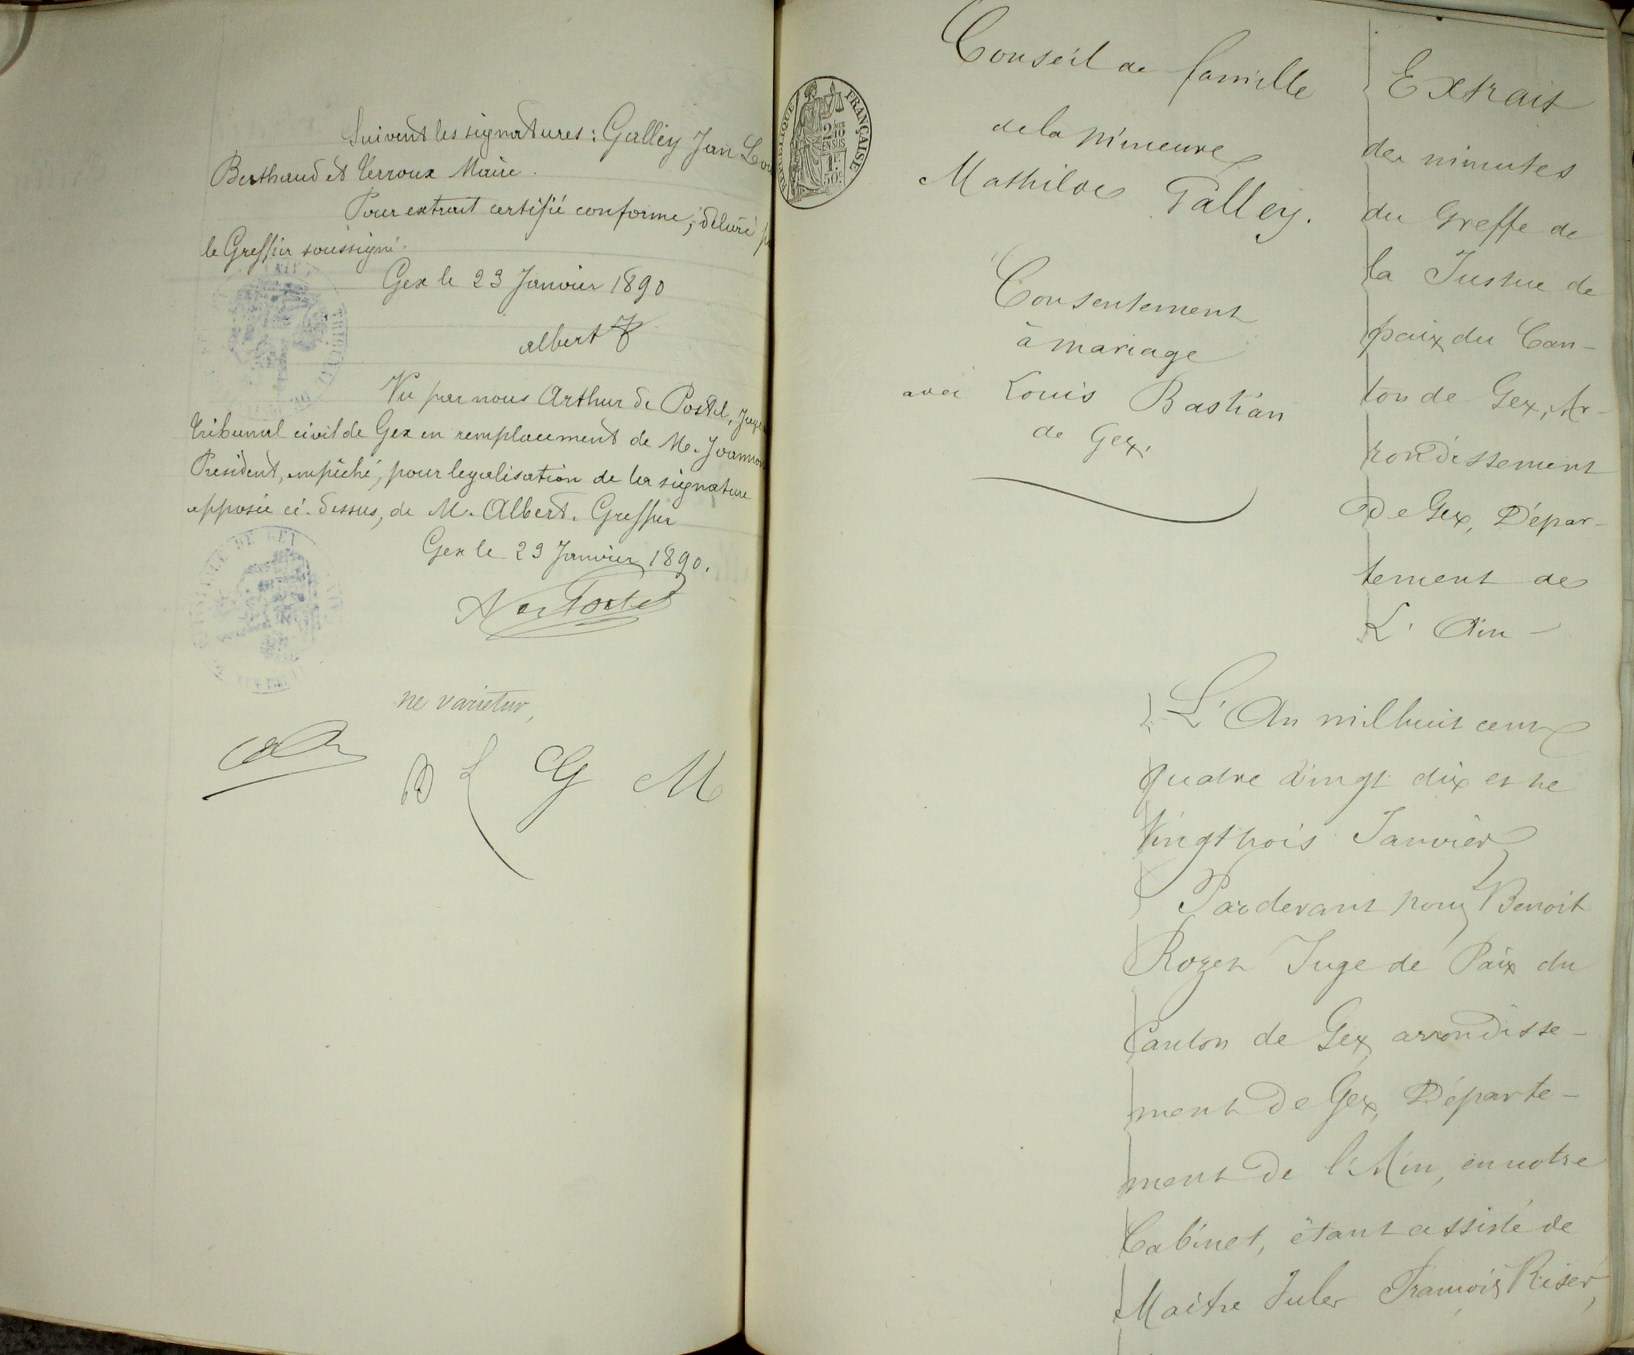 Suivent les signatures : Galley Jean Lou
Berthaud et Verroux Maire.
Pour extrait certifié conforme, délivré
le Greffier soussigné.
Gex le 23 Janvier 1890
Albert
Vu par nous Arthur de Postel, Juge
tribunal civil de Gex en remplacement de M. Joannon
Président, empêché, pour légalisation de la signature
apposée ci-dessus, de M. Albert. Greffier
Gex le 23 Janvier 1890.
ne varietur,
L G M
Conseil de famille
de la mineure
Mathilde Galley.
Consentement
à mariage
avec Louis Bastian
de Gex.
RÉPUBLIQUE FRANÇAISE
2 10 EN SUS
1F 50c
Extrait
des minutes
du Greffe de
la Justice de
paix du Can-
ton de Gex, Ar-
rondissement
de Gex, Dépar-
tement de
L'Ain -
L'An mil huit cent
quatre vingt dix et le
Vingt trois Janvier
Pardevant nous Benoit
Rozet Juge de Paix du
Canton de Gex, arrondisse-
ment de Gex, Départe-
ment de l'Ain, en notre
Cabinet, étant assisté de
Maître Jules François Riser,